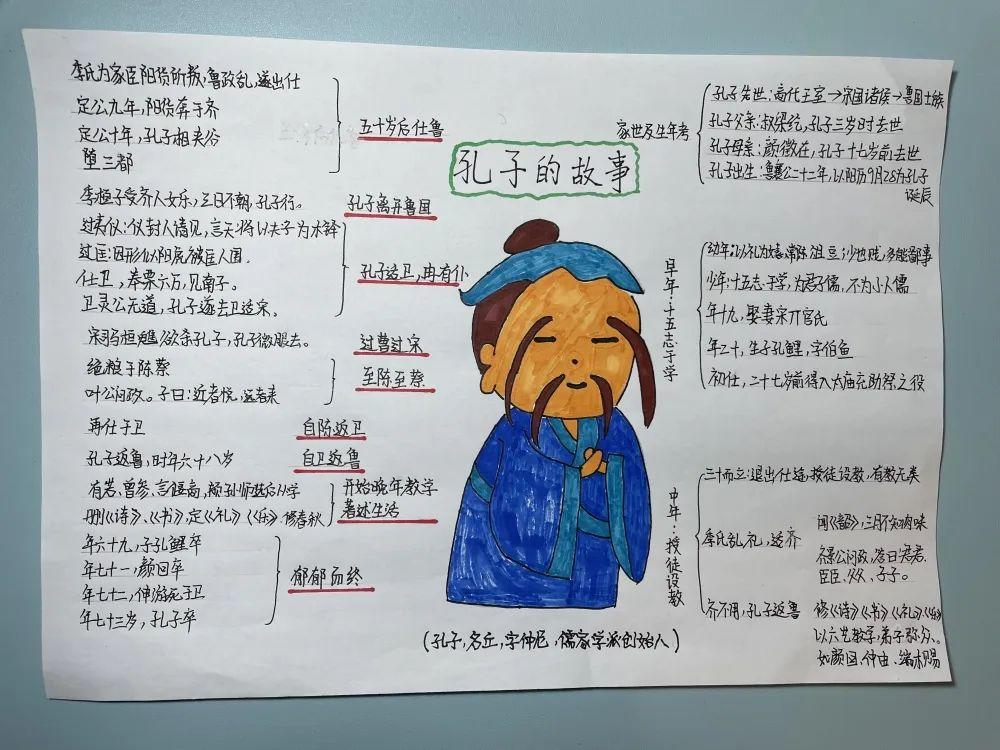 孔子的故事
家世及生年考
孔子先世:商代王室→宋国诸侯→鲁国士族
孔子父亲:叔梁纥,孔子三岁时去世
孔子母亲:颜徵在,孔子十七岁前去世
孔子出生:鲁襄公二十二年,以阳历9月28为孔子
诞辰
早年·十五志于学
幼年:以礼为嬉,常陈俎豆;少也贱,多能鄙事
少年:十五志于学,为君子儒,不为小人儒
年十九,娶妻宋亓官氏
年二十,生子孔鲤,字伯鱼
初仕,二十七岁前得入太庙充助祭之役
中年·授徒设教
三十而立:退出仕途,授徒设教,有教无类
季氏乱礼,适齐
闻《韶》,三月不知肉味
齐景公问政,答曰君君.
臣臣,父父,子子。
齐不用,孔子返鲁
修《诗》《书》《礼》《乐》
以六艺教学,弟子弥众、
如颜回.仲由、端木赐
五十岁后仕鲁
季氏为家臣阳货所叛,鲁政乱,遂出仕
定公九年,阳货奔于齐
定公十年,孔子相夹谷
堕三都
孔子离开鲁国
季桓子受齐人女乐,三日不朝,孔子行。
孔子适卫,冉有仆
过仪:仪封人请见,言天将以夫子为木铎
过匡:因形似阳虎被匡人围.
仕卫,奉粟六万,见南子。
卫灵公无道,孔子遂去卫适宋.
过曹过宋
宋司马桓魋欲杀孔子,孔子微服去。
至陈至蔡
绝粮于陈蔡
叶公问政。子曰:近者悦,远者来
自陈返卫
再仕于卫
自卫返鲁
孔子返鲁,时年六十八岁
开始晚年教学
著述生活
有若、曾参、言偃、颛孙师进后从学
删《诗》、《书》,定《礼》《乐》.修春秋
郁郁而终
年六十九,子孔鲤卒
年七十一,颜回卒
年七十二,仲由死于卫
年七十三岁,孔子卒
(孔子,名丘,字仲尼,儒家学派创始人)